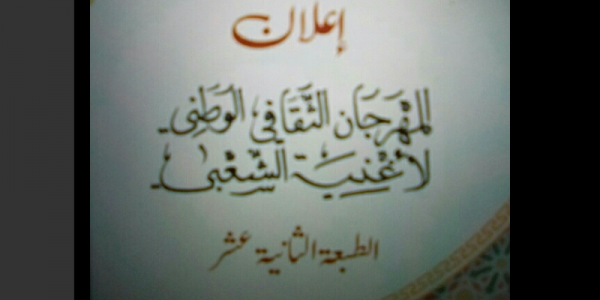 إعلان
المهرجان الثقافي الوطني
لأغنية الشعبي
الطبعة الثانية عشر